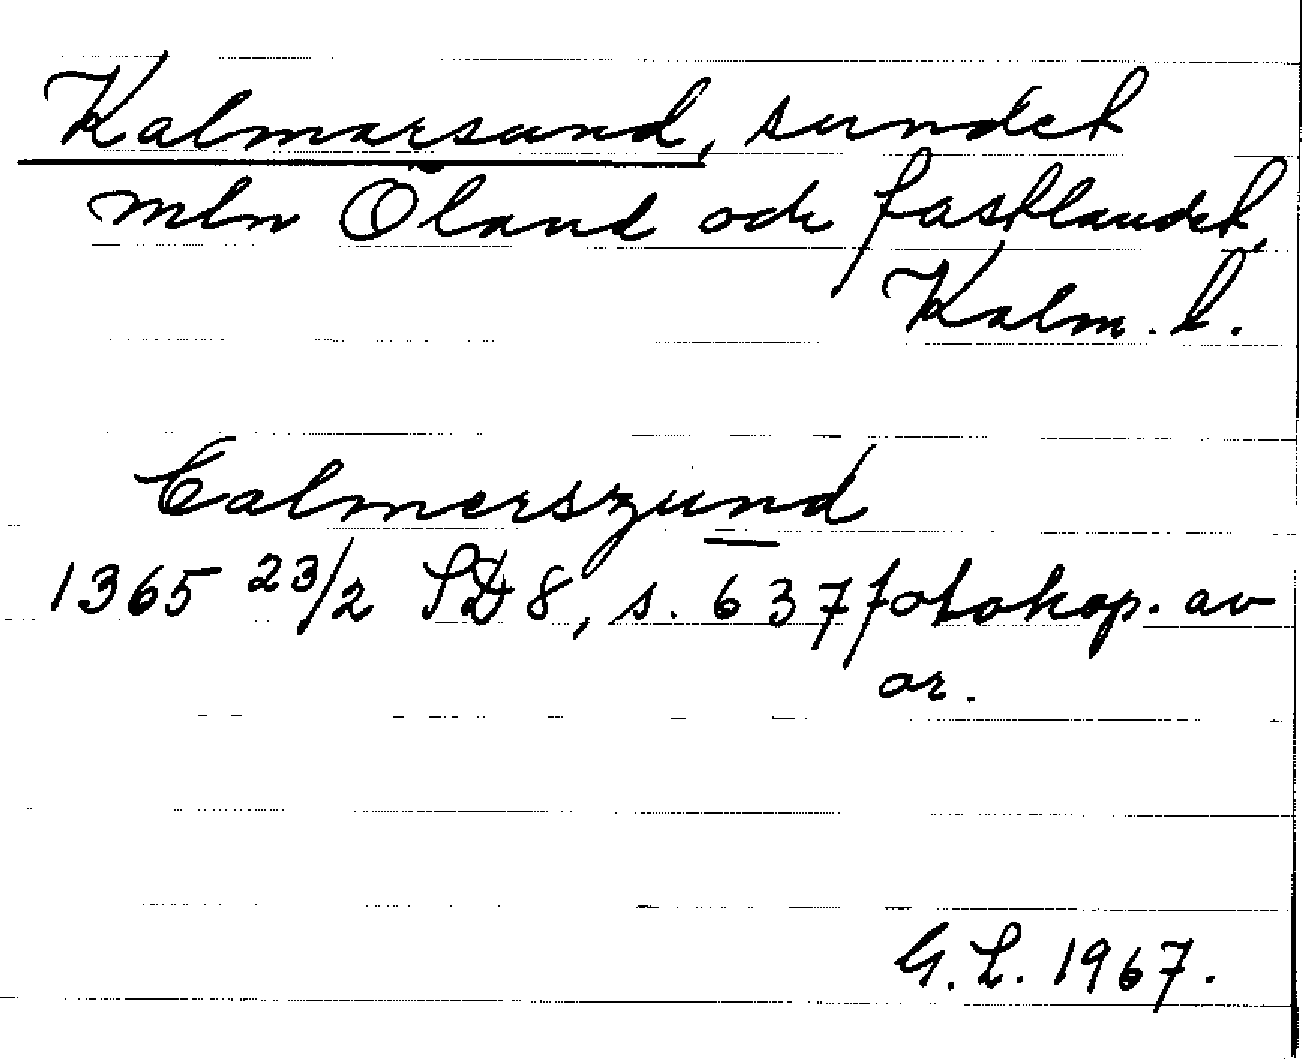 Kalmarsund, sundet
mln Öland och fastlandet,
Kalm. l.
Calmerszund
1365 23/2 SD 8, s. 637 fotokop. av
or.
G. L. 1967.